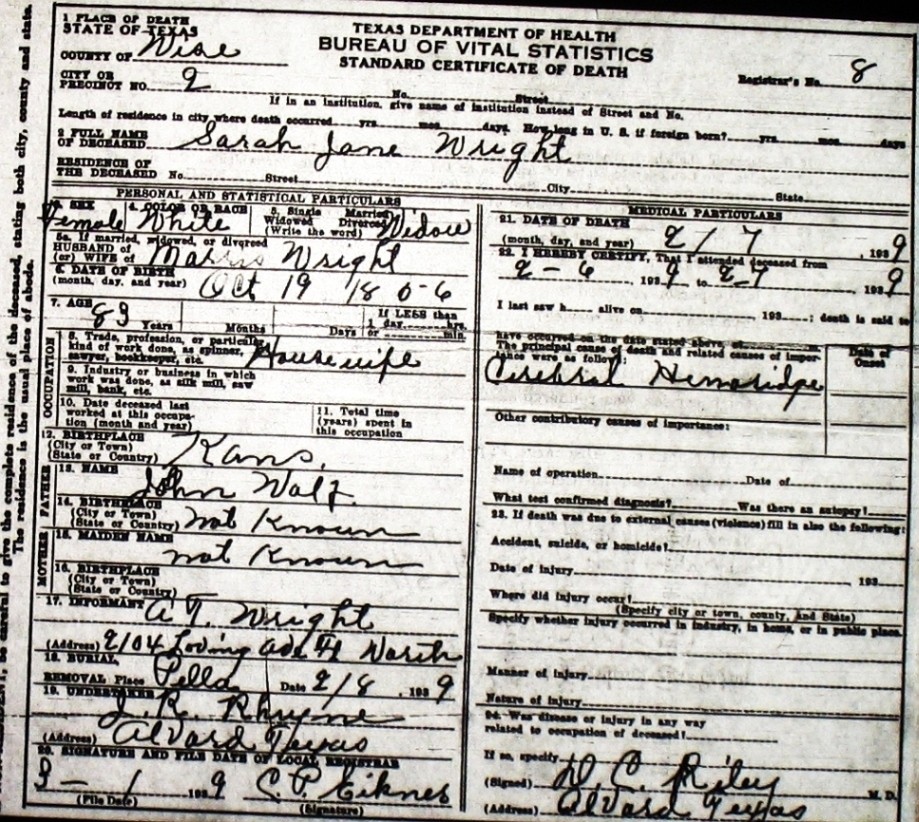 1 PLACE OF DEATH
STATE OF TEXAS
COUNTY OF Wise
CITY OR
PRECINCT NO. 2
TEXAS DEPARTMENT OF HEALTH
BUREAU OF VITAL STATISTICS
STANDARD CERTIFICATE OF DEATH
Registrar's No. 8
No. Street
If in an institution, give name of institution instead of Street and No.
Length of residence in city where death occurred yrs. mos. days. How long in U. S. if foreign born? yrs. mos. days
2 FULL NAME
OF DECEASED Sarah Jane Wright
RESIDENCE OF
THE DECEASED No. Street City State
PERSONAL AND STATISTICAL PARTICULARS
3. SEX 4. COLOR OR RACE 5. Single Married
Widowed Divorced
(Write the word)
Female White Widow
5a. If married, widowed, or divorced
HUSBAND OF
(or) WIFE of Wright
6. DATE OF BIRTH
(month, day, and year) Oct 19 1856
7. AGE If LESS than
83 Years Months Days 1 day hrs.
or min.
OCCUPATION
8. Trade, profession, or particular
kind of work done, as spinner,
sawyer, bookkeeper, etc. Housewife
9. Industry or business in which
work was done, as silk mill, saw
mill, bank, etc.
10. Date deceased last
worked at this occupa-
tion (month and year)
11. Total time
(years) spent in
this occupation
12. BIRTHPLACE
(City or Town)
(State or Country) Kans.
FATHER
13. NAME John
14. BIRTHPLACE
(City or Town)
(State or Country) not Known
MOTHER
15. MAIDEN NAME
not Known
16. BIRTHPLACE
(City or Town)
(State or Country)
17. INFORMANT A T. Wright
(Address) 2104 Loving Worth
18. BURIAL,
REMOVAL Place Pella Date 2/8, 1939
19. UNDERTAKER
J. R. Rhyne
(Address) Alvord Texas
20. SIGNATURE AND FILE DATE OF LOCAL REGISTRAR
3 - 1 1939 C. P.
(File Date) (Signature)
MEDICAL PARTICULARS
21. DATE OF DEATH
(month, day, and year) 2/7 1939
22. I HEREBY CERTIFY, That I attended deceased from
2-6 1939 to 2-7 1939
I last saw h alive on 193 ; death is said to
have occurred on the date stated above, at m.
The principal cause of death and related causes of impor-
tance were as follow:
Date of
Onset
Cerebral Hemoridge
Other contributory causes of importance:
Name of operation Date of
What test confirmed diagnosis? Was there an autopsy?
23. If death was due to external causes (violence) fill in also the following:
Accident, suicide, or homicide?
Date of injury , 193
Where did injury occur?
(Specify city or town, county, and State)
Specify whether injury occurred in industry, in home, or in public place.
Manner of injury
Nature of injury
24. Was disease or injury in any way
related to occupation of deceased?
If so, specify
(Signed) D. C. Riley M. D.
(Address) Alvord Texas
be careful to give the complete residence of the deceased, stating both city, county and state.
The residence is the usual place of abode.